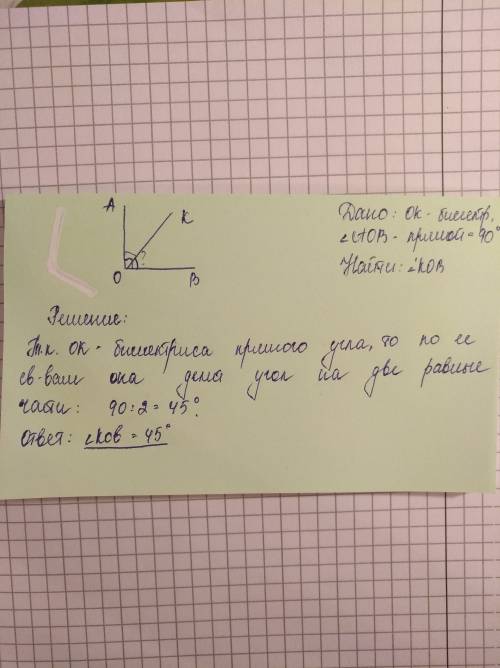 A
K
?
O
B
Дано: OK - биссектр.
∠AOB - прямой = 90°
Найти: ∠KOB
Решение:
Т.к. OK - биссектриса прямого угла, то по её
св-вам она делит угол на две равные
части: 90:2 = 45°.
Ответ: ∠KOB = 45°